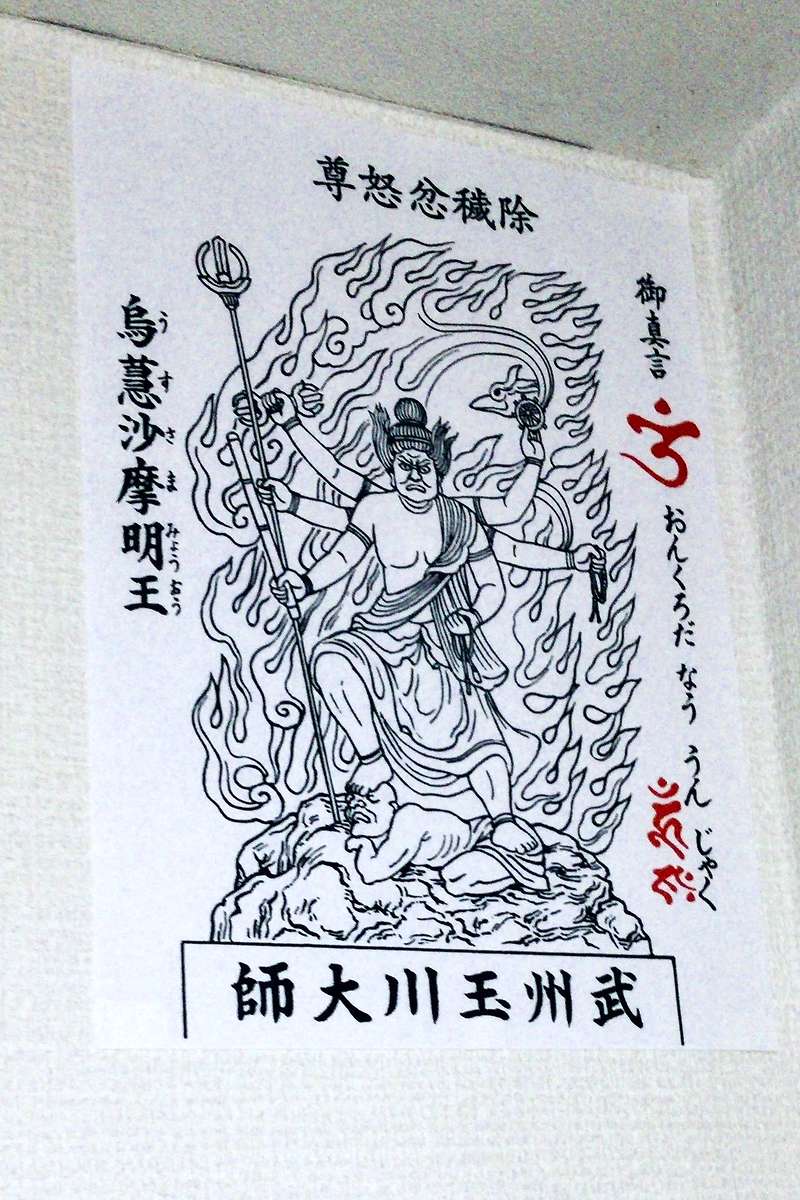 除穢忿怒尊
御真言
おんくろだ なう うん じゃく
烏蒭沙摩明王
うすさまみょうおう
武州玉川大師